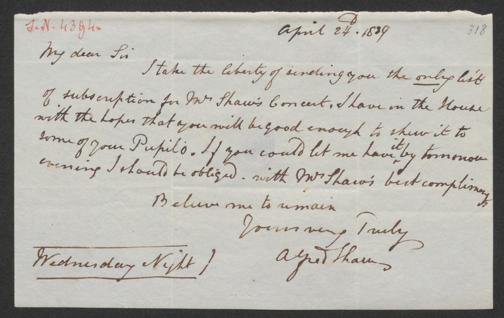 S.N. 43940
April 24th. 1839
318
My dear Sir
I take the liberty of sending you the only list
of subscription for Mrs Shaw's Concert, I have in the House
with the hopes that you will be good enough to shew it to
some of your Pupil's. If you could let me have it by tomorrow
evening I should be obliged. with Mrs Shaw's best compliments
Believe me to remain
Yours very Truly
Alfred Shaw
Wednesday Night